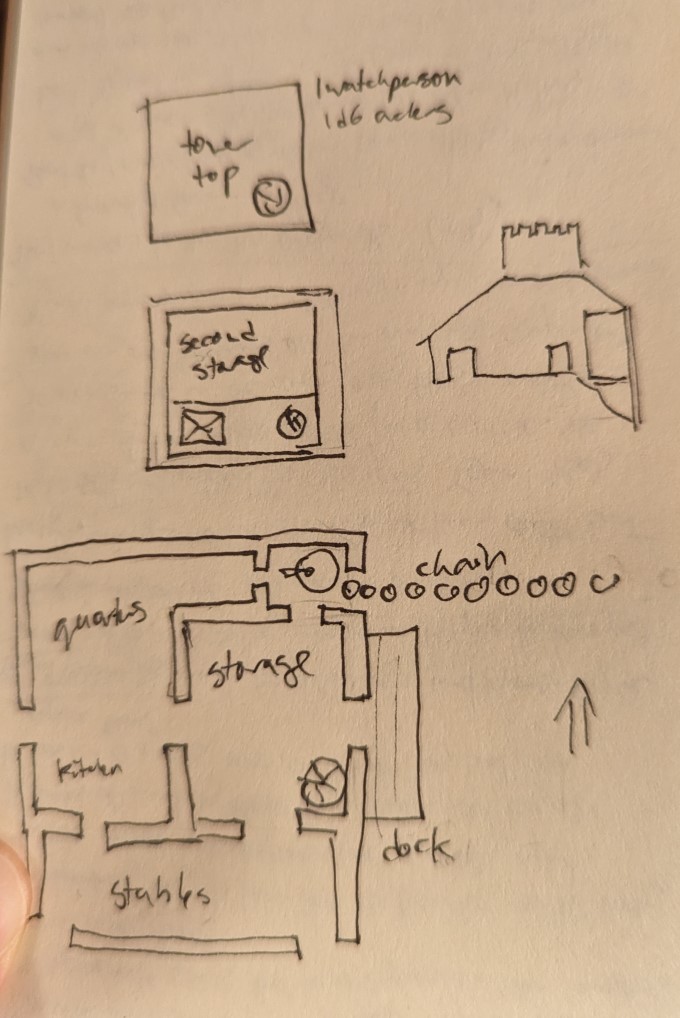 1 watchperson
1d6 archers
tower
top
second
storage
chain
quarters
storage
kitchen
dock
stables